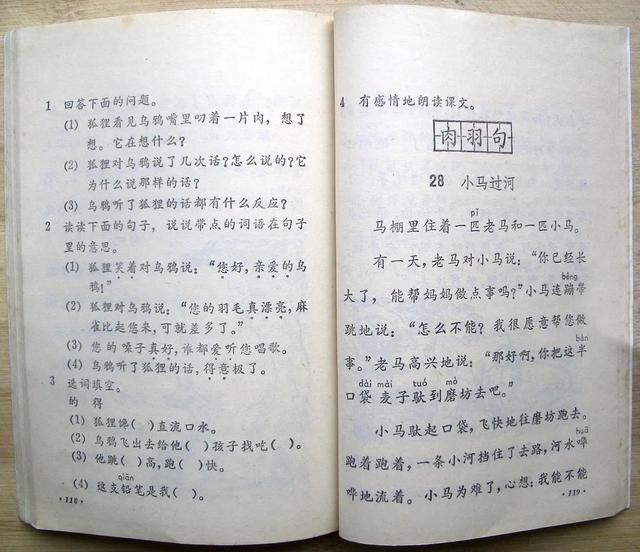 1 回答下面的问题。
(1) 狐狸看见乌鸦嘴里叼着一片肉，想了
想。它在想什么？
(2) 狐狸对乌鸦说了几次话？怎么说的？它
为什么说那样的话？
(3) 乌鸦听了狐狸的话都有什么反应？
2 读读下面的句子，说说带点的词语在句子
里的意思。
(1) 狐狸笑着对乌鸦说：“您好，亲爱的乌
鸦！”
(2) 狐狸对乌鸦说：“您的羽毛真漂亮，麻
雀比起您来，可就差多了。”
(3) 您的嗓子真好，谁都爱听您唱歌。
(4) 乌鸦听了狐狸的话，得意极了。
3 选词填空。
的 得
(1) 狐狸馋( )直流口水。
(2) 乌鸦飞出去给他( )孩子找吃( )。
(3) 他跳( )高，跑( )快。
qiān
(4) 这支铅笔是我( )。
·118·
4 有感情地朗读课文。
肉 羽 句
28 小马过河
pǐ
马棚里住着一匹老马和一匹小马。
有一天，老马对小马说：“你已经长
bèng
大了，能帮妈妈做点事吗？”小马连蹦带
跳地说：“怎么不能？我很愿意帮您做
bàn
事。”老马高兴地说：“那好啊，你把这半
dài mài tuó mò
口袋麦子驮到磨坊去吧。”
小马驮起口袋，飞快地往磨坊跑去。
huā
跑着跑着，一条小河挡住了去路，河水哗
哗地流着。小马为难了，心想：我能不能
·119·